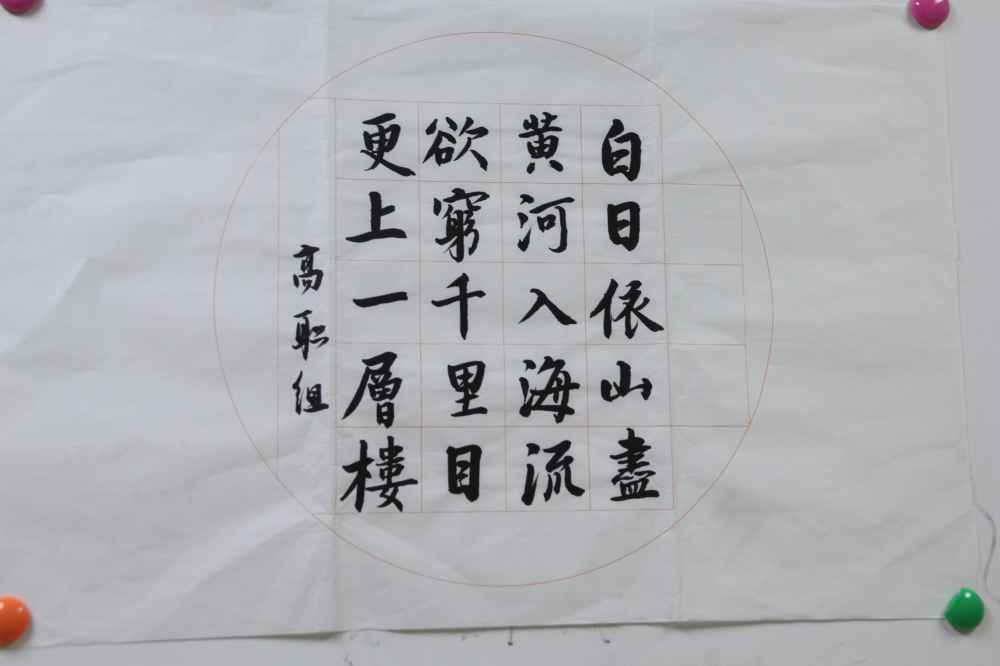 白日依山盡
黃河入海流
欲窮千里目
更上一層樓
高職組